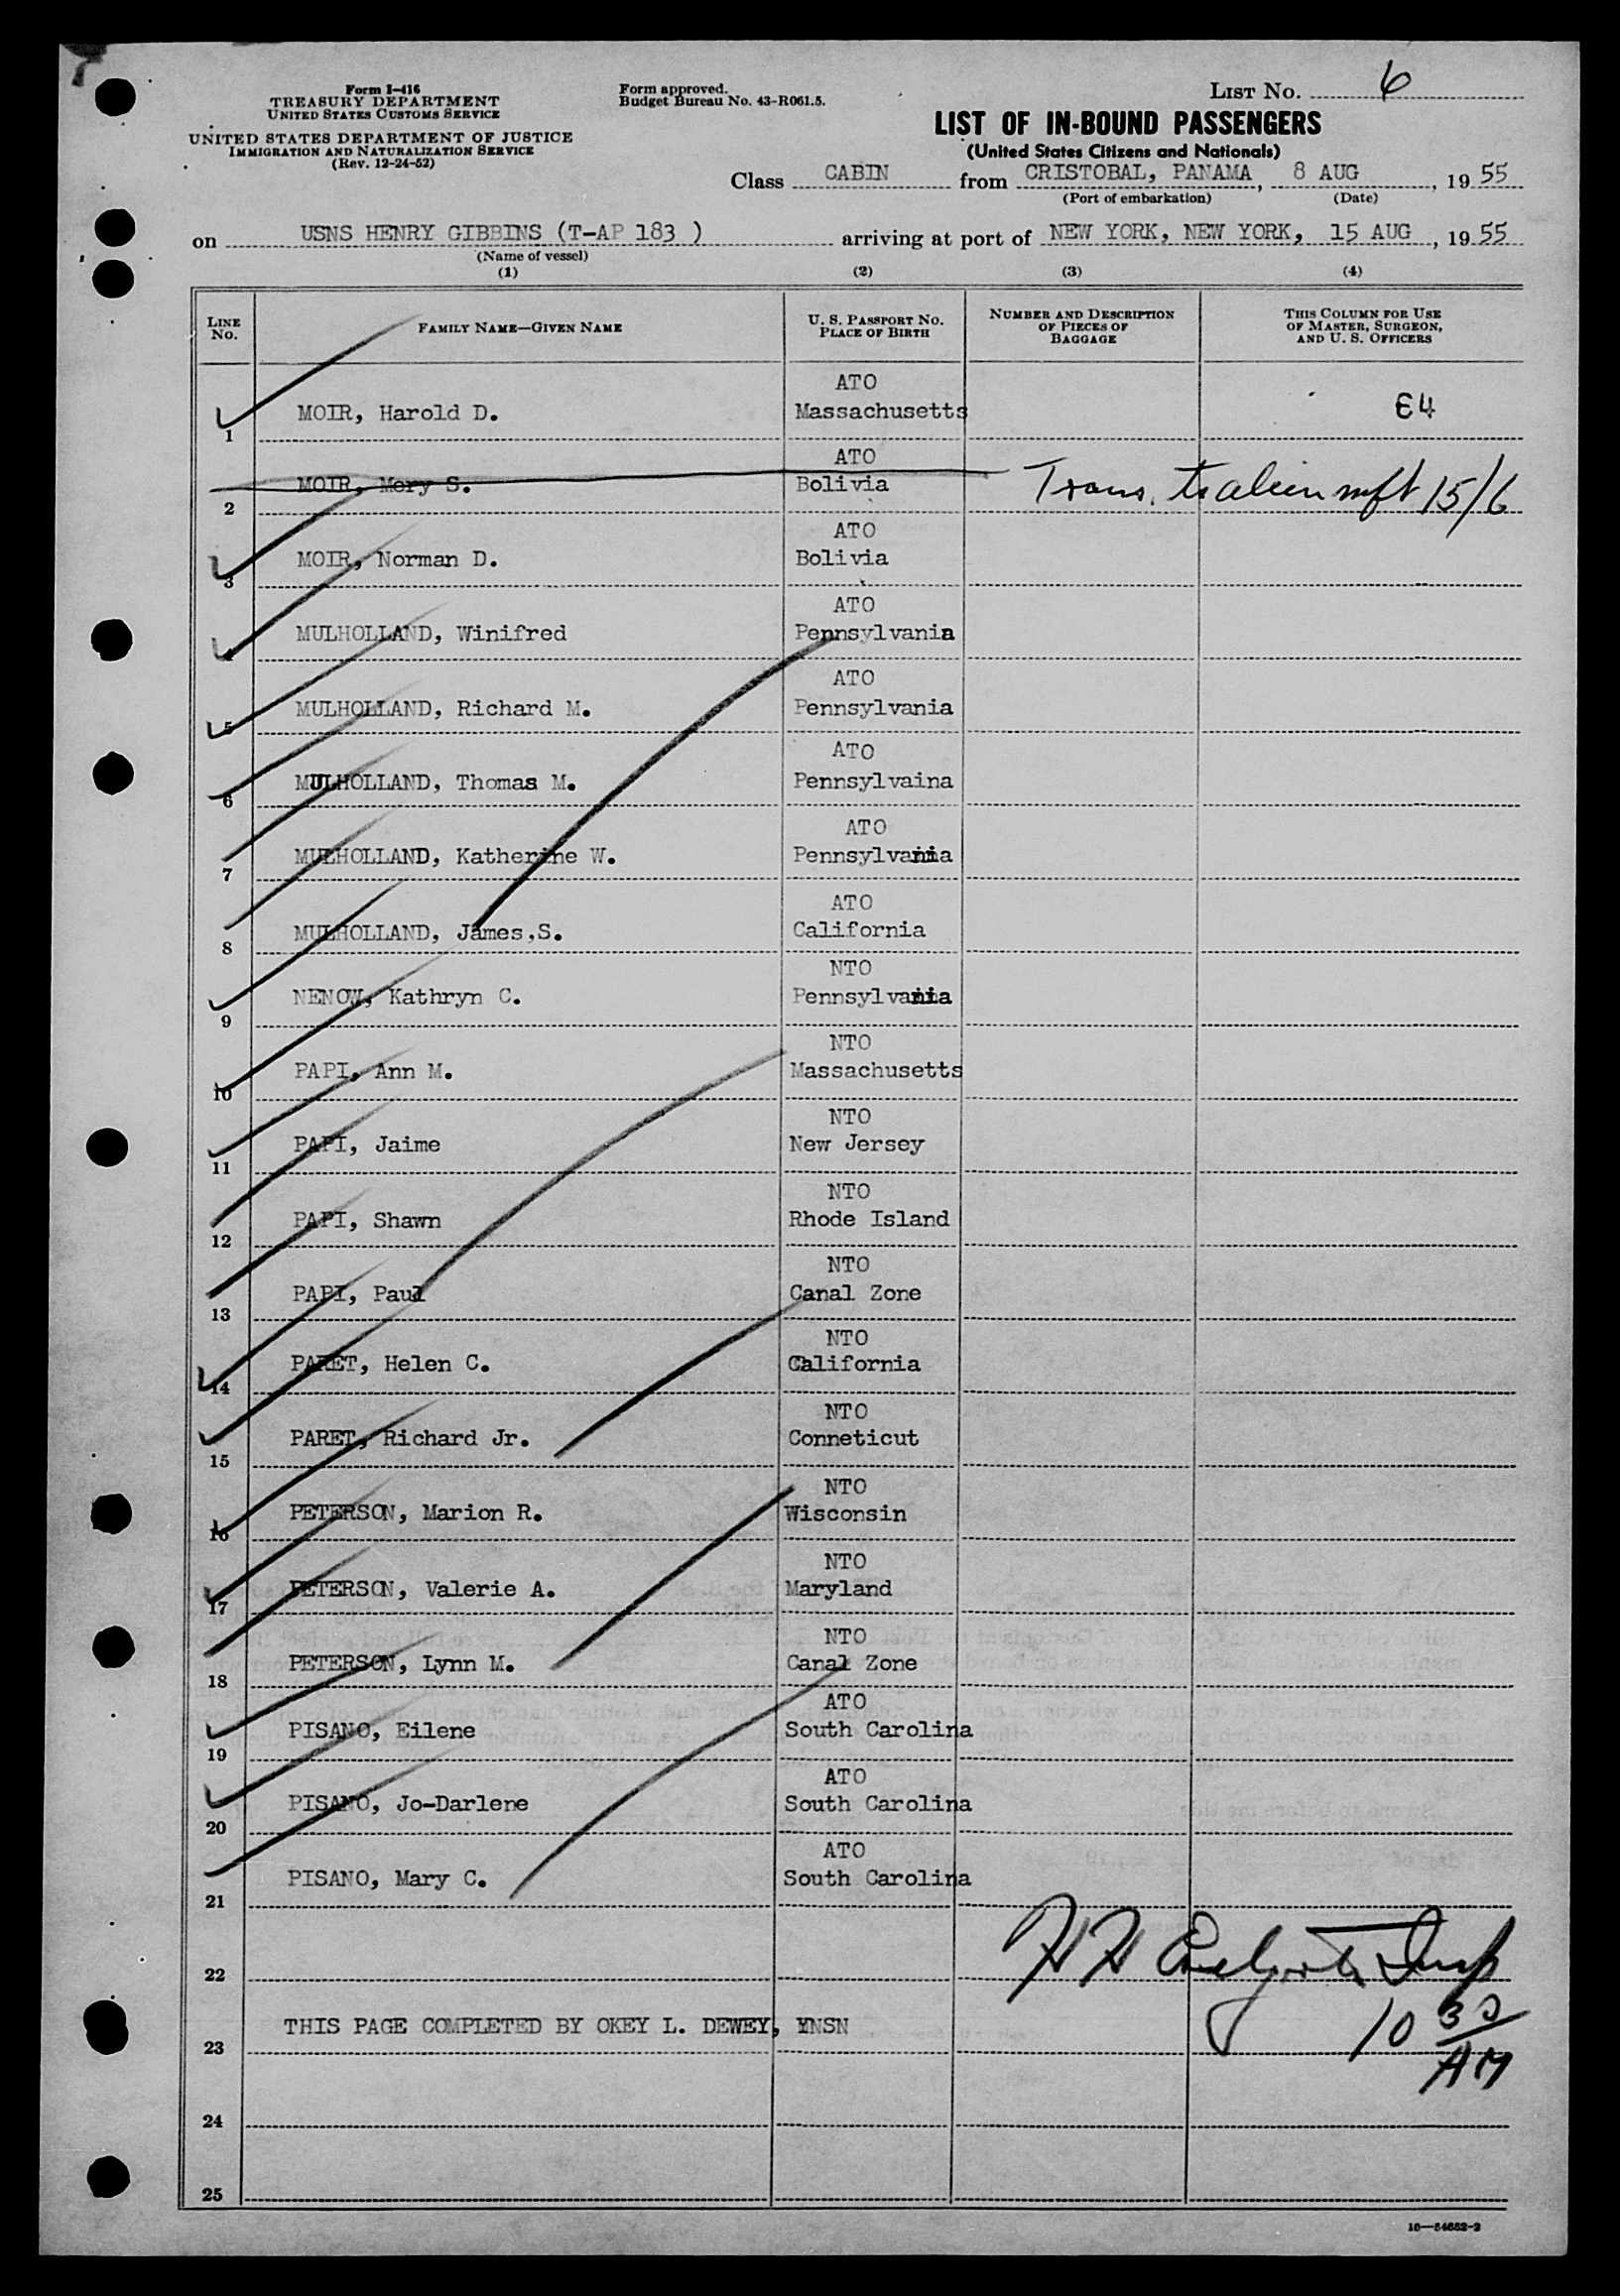 Form I-416
TREASURY DEPARTMENT
UNITED STATES CUSTOMS SERVICE
UNITED STATES DEPARTMENT OF JUSTICE
IMMIGRATION AND NATURALIZATION SERVICE
(Rev. 12-24-52)
Form approved.
Budget Bureau No. 43-R061.5.
LIST No. 6
LIST OF IN-BOUND PASSENGERS
(United States Citizens and Nationals)
Class CABIN from CRISTOBAL, PANAMA, 8 AUG, 1955
(Port of embarkation) (Date)
on USNS HENRY GIBBINS (T-AP 183 ) arriving at port of NEW YORK, NEW YORK, 15 AUG, 1955
(Name of vessel)
(1) (2) (3) (4)
LINE No. FAMILY NAME—GIVEN NAME U. S. PASSPORT No. PLACE OF BIRTH NUMBER AND DESCRIPTION OF PIECES OF BAGGAGE THIS COLUMN FOR USE OF MASTER, SURGEON, AND U. S. OFFICERS
ATO
1 MOIR, Harold D. Massachusetts E4
ATO
2 MOIR, Mery S. Bolivia Trans. to alien mft 15/6
ATO
3 MOIR, Norman D. Bolivia
ATO
4 MULHOLLAND, Winifred Pennsylvania
ATO
5 MULHOLLAND, Richard M. Pennsylvania
ATO
6 MULHOLLAND, Thomas M. Pennsylvaina
ATO
7 MULHOLLAND, Katherine W. Pennsylvania
ATO
8 MULHOLLAND, James,S. California
NTO
9 NENOW, Kathryn C. Pennsylvania
NTO
10 PAPI, Ann M. Massachusetts
NTO
11 PAPI, Jaime New Jersey
NTO
12 PAPI, Shawn Rhode Island
NTO
13 PAPI, Paul Canal Zone
NTO
14 PARET, Helen C. California
NTO
15 PARET, Richard Jr. Conneticut
NTO
16 PETERSON, Marion R. Wisconsin
NTO
17 PETERSON, Valerie A. Maryland
NTO
18 PETERSON, Lynn M. Canal Zone
ATO
19 PISANO, Eilene South Carolina
ATO
20 PISANO, Jo-Darlene South Carolina
ATO
21 PISANO, Mary C. South Carolina
22 H H Insp
23 THIS PAGE COMPLETED BY OKEY L. DEWEY, YNSN 10 30 AM
24
25
16—54652-2